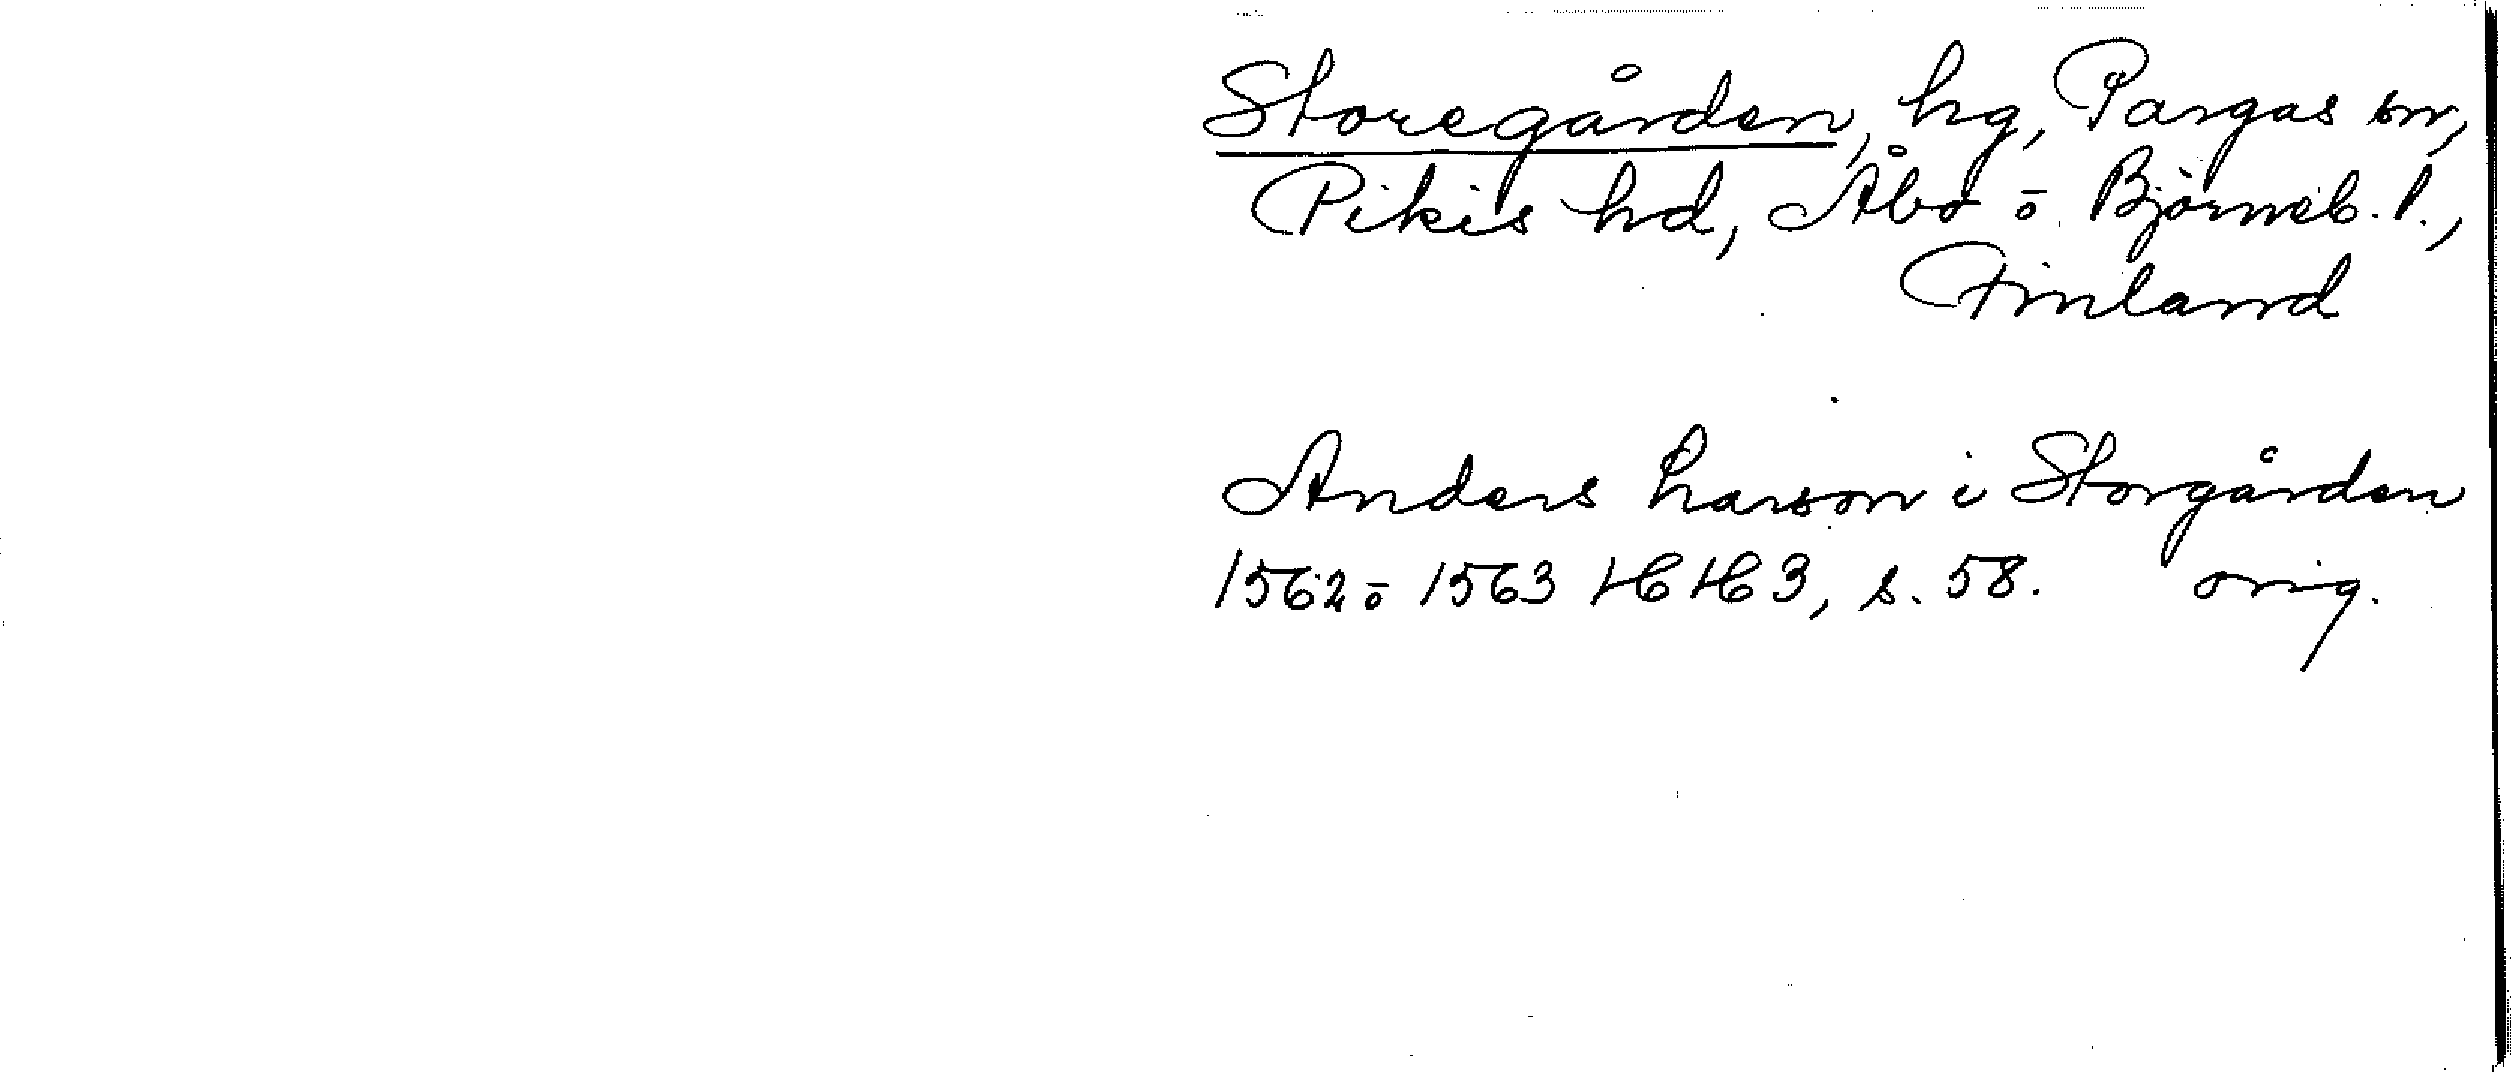 Storegården, hg, Pargas sn,
Pikis hd, Åbo o. Björneb. l.,
Finland
Anders Larson i Storgården
1562 o 1563 HH 3, s. 58. orig.